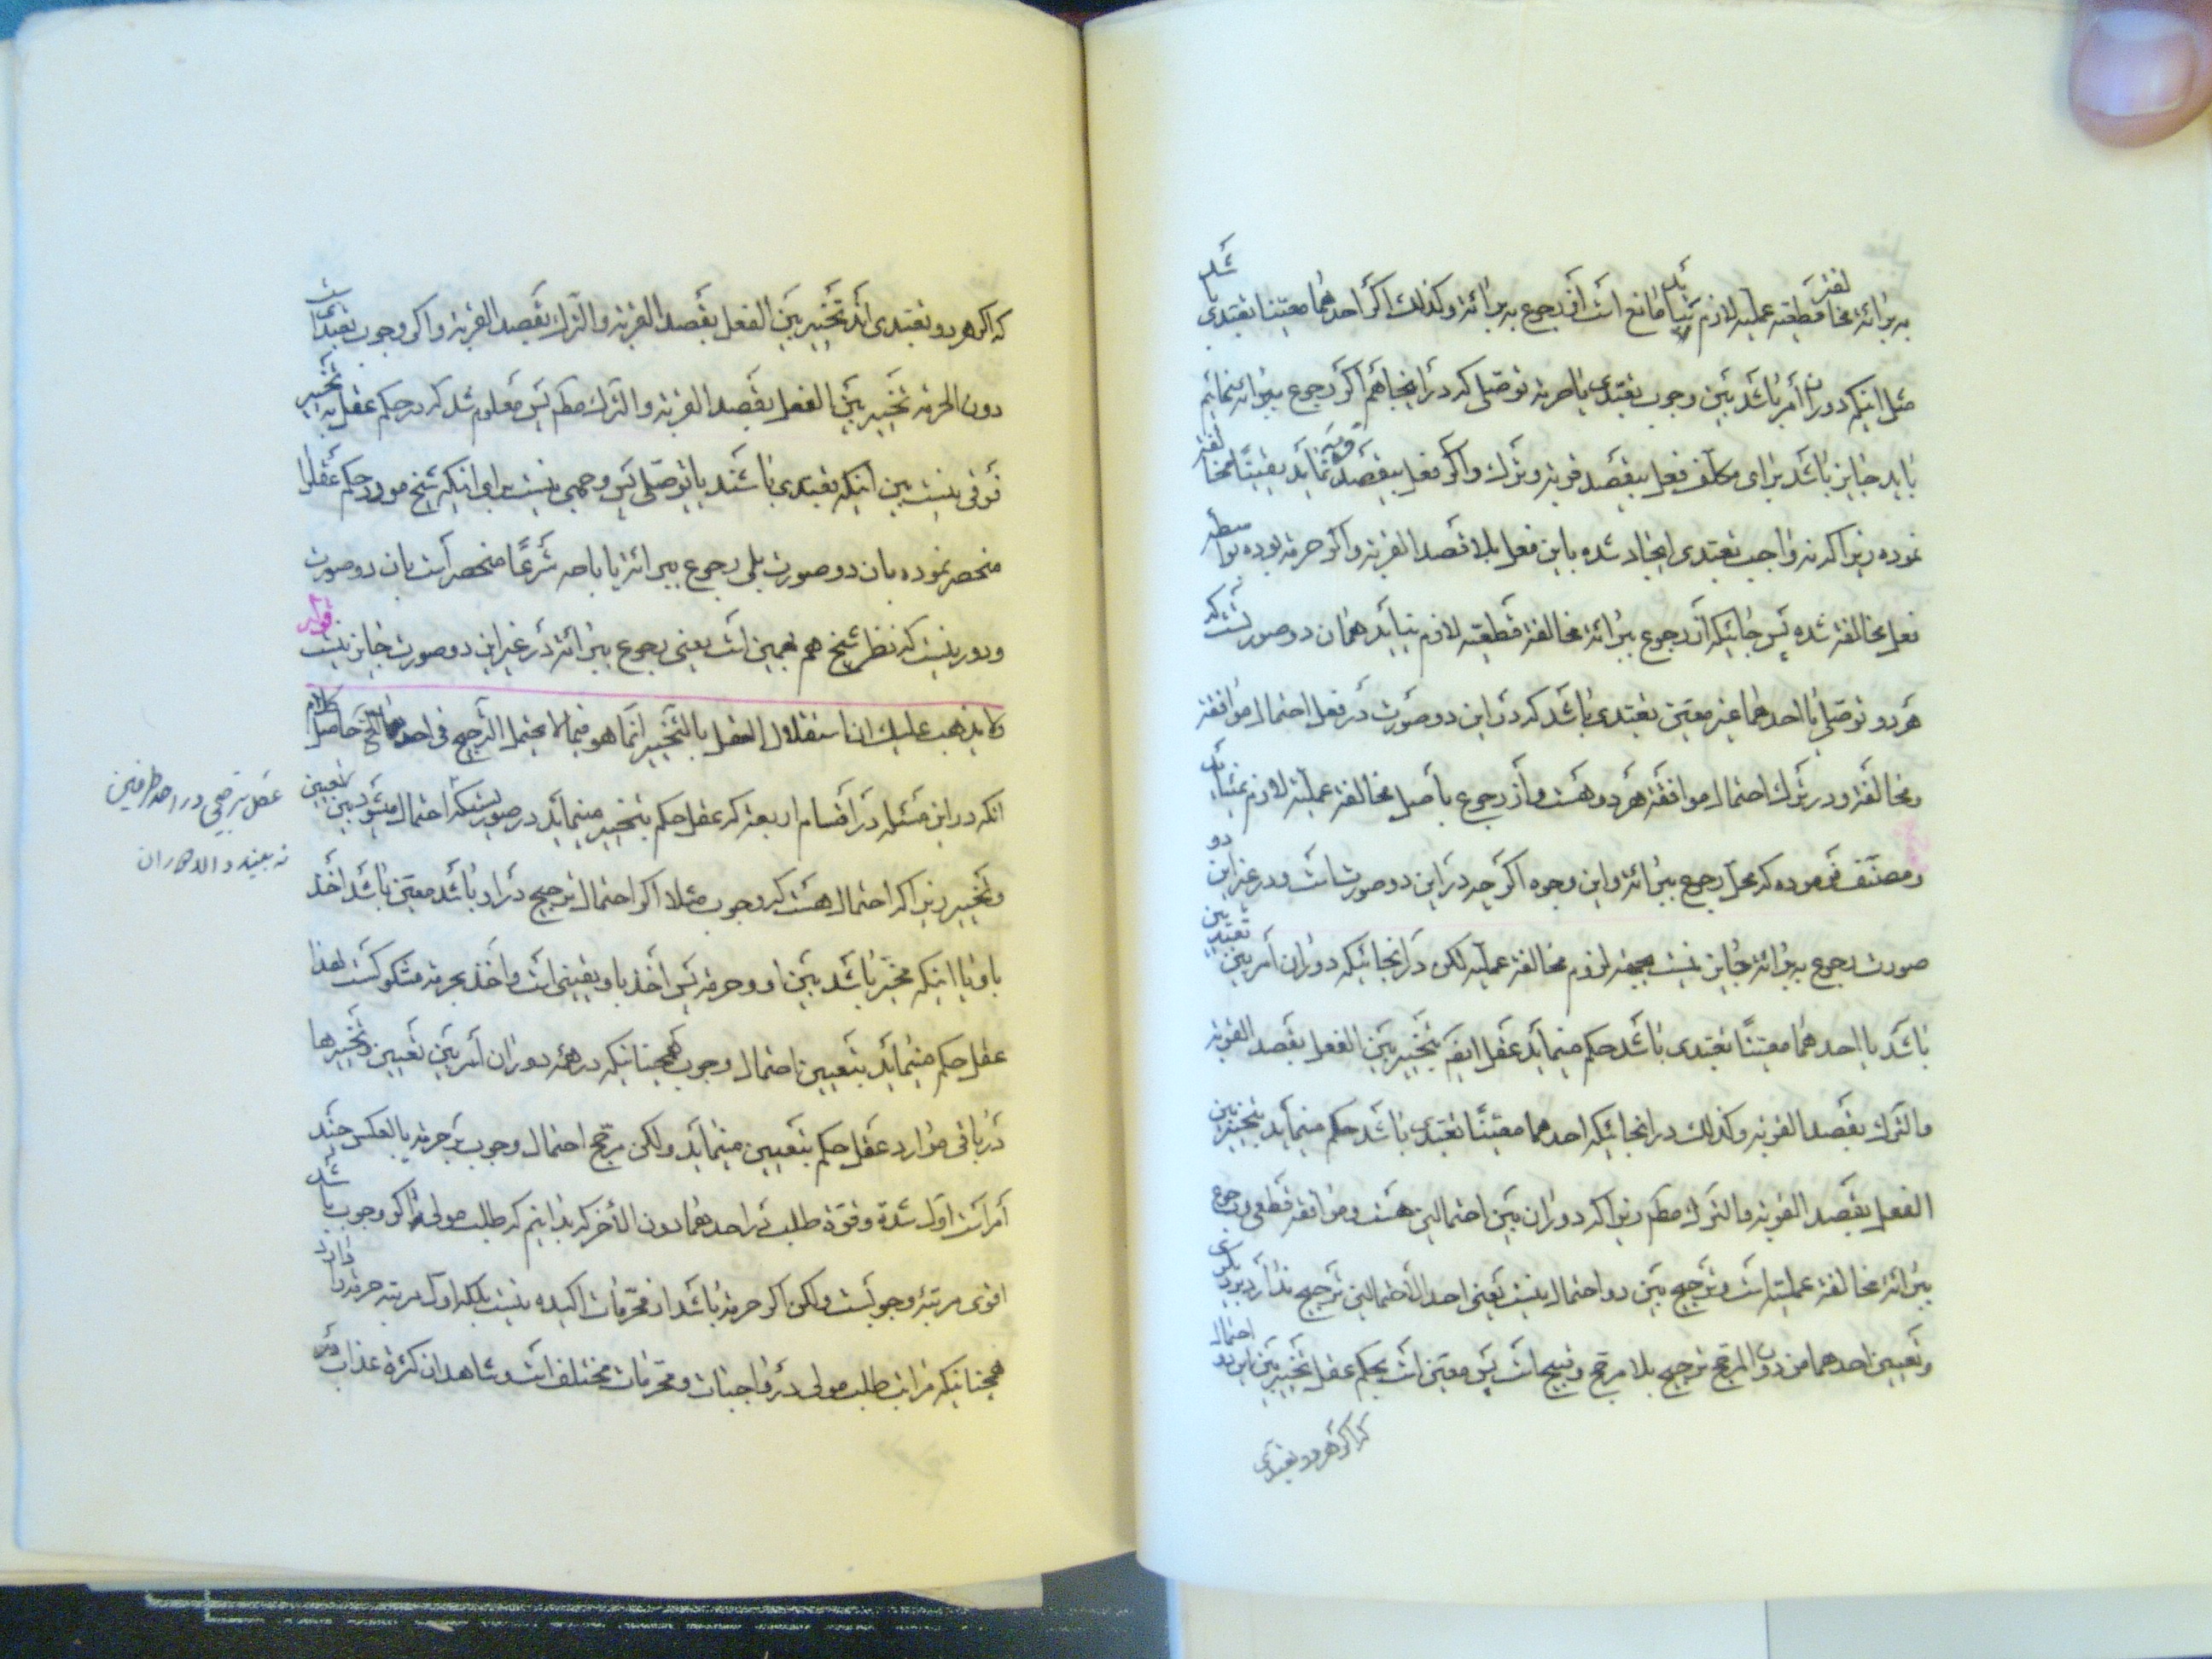 به برائة مخالفة قطعیه عملیه لازم نیاید مانع است از رجوع به برائة وکذلك اکر احدهما معیناً تعبدی باشد
مثل اینکه دوران أمر باشد بین وجوب تعبدی یا حرمة توصلی که در اینجا هم اکر رجوع ببرائة نمائیم
باید جایز باشد برای مکلف فعل بیقصد قربة وترك واکر فعل بیقصد قربة نماید یقیناً مخالفة
نموده زیرا که نه واجب تعبدی ایجاد شده باین فعل بلا قصد القربة واکر حرمة بوده بواسطه
فعل مخالفة شده پس جائیکه از رجوع ببرائة مخالفة قطعیه لازم نیاید همان دو صورتست که
هر دو توصلی یا احدهما غیر معین تعبدی باشد که در این دو صورت در فعل احتمال موافقة
ومخالفة ودر ترك احتمال موافقة هر دو هست واز رجوع بأصل مخالفة عملیة لازم نمیاید
ومصنف فرموده که محل رجوع ببرائة واین وجوه اکر چه در این دو صورت است ودر غیر این دو
صورت رجوع به برائة جایز نیست بجهة لزوم مخالفة عملیه لکن در آنجائیکه دوران أمر بین تعبدیین
باشد یا احدهما معیناً تعبدی باشد حکم مینماید عقل ایضً بتخییر بین الفعل بقصد القربة
والترك بقصد القربة وکذلك در انجائیکه احدهما معیناً تعبدی باشد حکم مینماید بتخییر بین
الفعل بقصد القربة والترك مطم زیرا که دوران بین احتمالین هست وموافقة قطعی ورجوع
ببرائة مخالفة عملیه است وترجیح بین دو احتمال نیست یعنی احد الأحتمالین ترجیح ندارد بر دیکری
وتعیین احدهما من دون المرجح ترجیح بلا مرجح وقبیح است پس معین است بحکم عقل تخییر بین این دو احتمال
که اکر هر دو تعبدی
که اکر هر دو تعبدی اند تخییر بین الفعل بقصد القربة والترك بقصد القربة واکر وجوب تعبدی است
دون الحرمة تخییر بین الفعل بقصد القربة والترك مطم پس معلوم شد که در حکم عقل به تخییر
فرقی نیست بین اینکه تعبدی باشند یا توصلی پس وجهی نیست برای اینکه شیخ مورد حکم عقل را
منحصر نموده بان دو صورت بلی رجوع ببرائة یا اباحه شرعاً منحصر است بان دو صورت
ودور نیست که نظر شیخ هم همین است یعنی رجوع ببرائة در غیر این دو صورت جایز نیست قوله
ولا یذهب علیك ان استقلال العقل بالتخییر انما هو فیما لا یحتمل الترجیح فی احدهما الخ حاصل کلام
انکه در این مسئله در اقسام اربعة که عقل حکم بتخییر مینماید در صورتیستکه احتمال میشود بین تعیین
عقل ترجیحی در احد طرفین
نه بیند والا دوران
وتخییر زیرا که احتمال هست که وجوب مثلا اکر احتمال ترجیح در او باشد معین باشد اخذ
باو یا اینکه مخیر باشد بین او وحرمة پس اخذ باو یقینی است واخذ بحرمة مشکوکست لهذا
عقل حکم مینماید بتعیین احتمال وجوب همچنانیکه در همه دوران أمر بین تعیین وتخییرها
در باقی موارد عقل حکم بتعیین مینماید ولکن مرجح احتمال وجوب بر حرمة یا بالعکس چند
أمر است اول شدة وقوة طلب در احدهما دون الأخر که بدانیم که طلب مولی اکر وجوب باشد
اقوی مرتبة وجوبست ولکن اکر حرمة باشد از محرمات اکیده نیست بلکه اول مرتبه حرمة را دارد
همچنانیکه مراتب طلب مولی در واجبات ومحرمات مختلف است وشاهد ان کثرة عذاب در